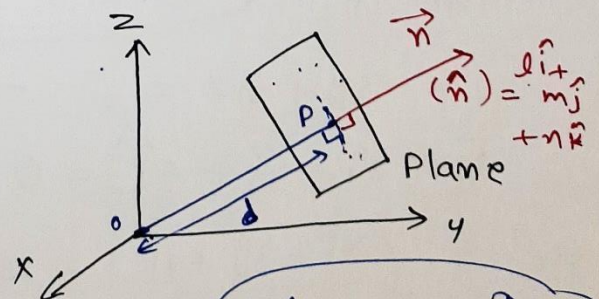 Z
n
(n̂) = lî+
mĵ
+nk̂
P
Plane
O
d
y
X